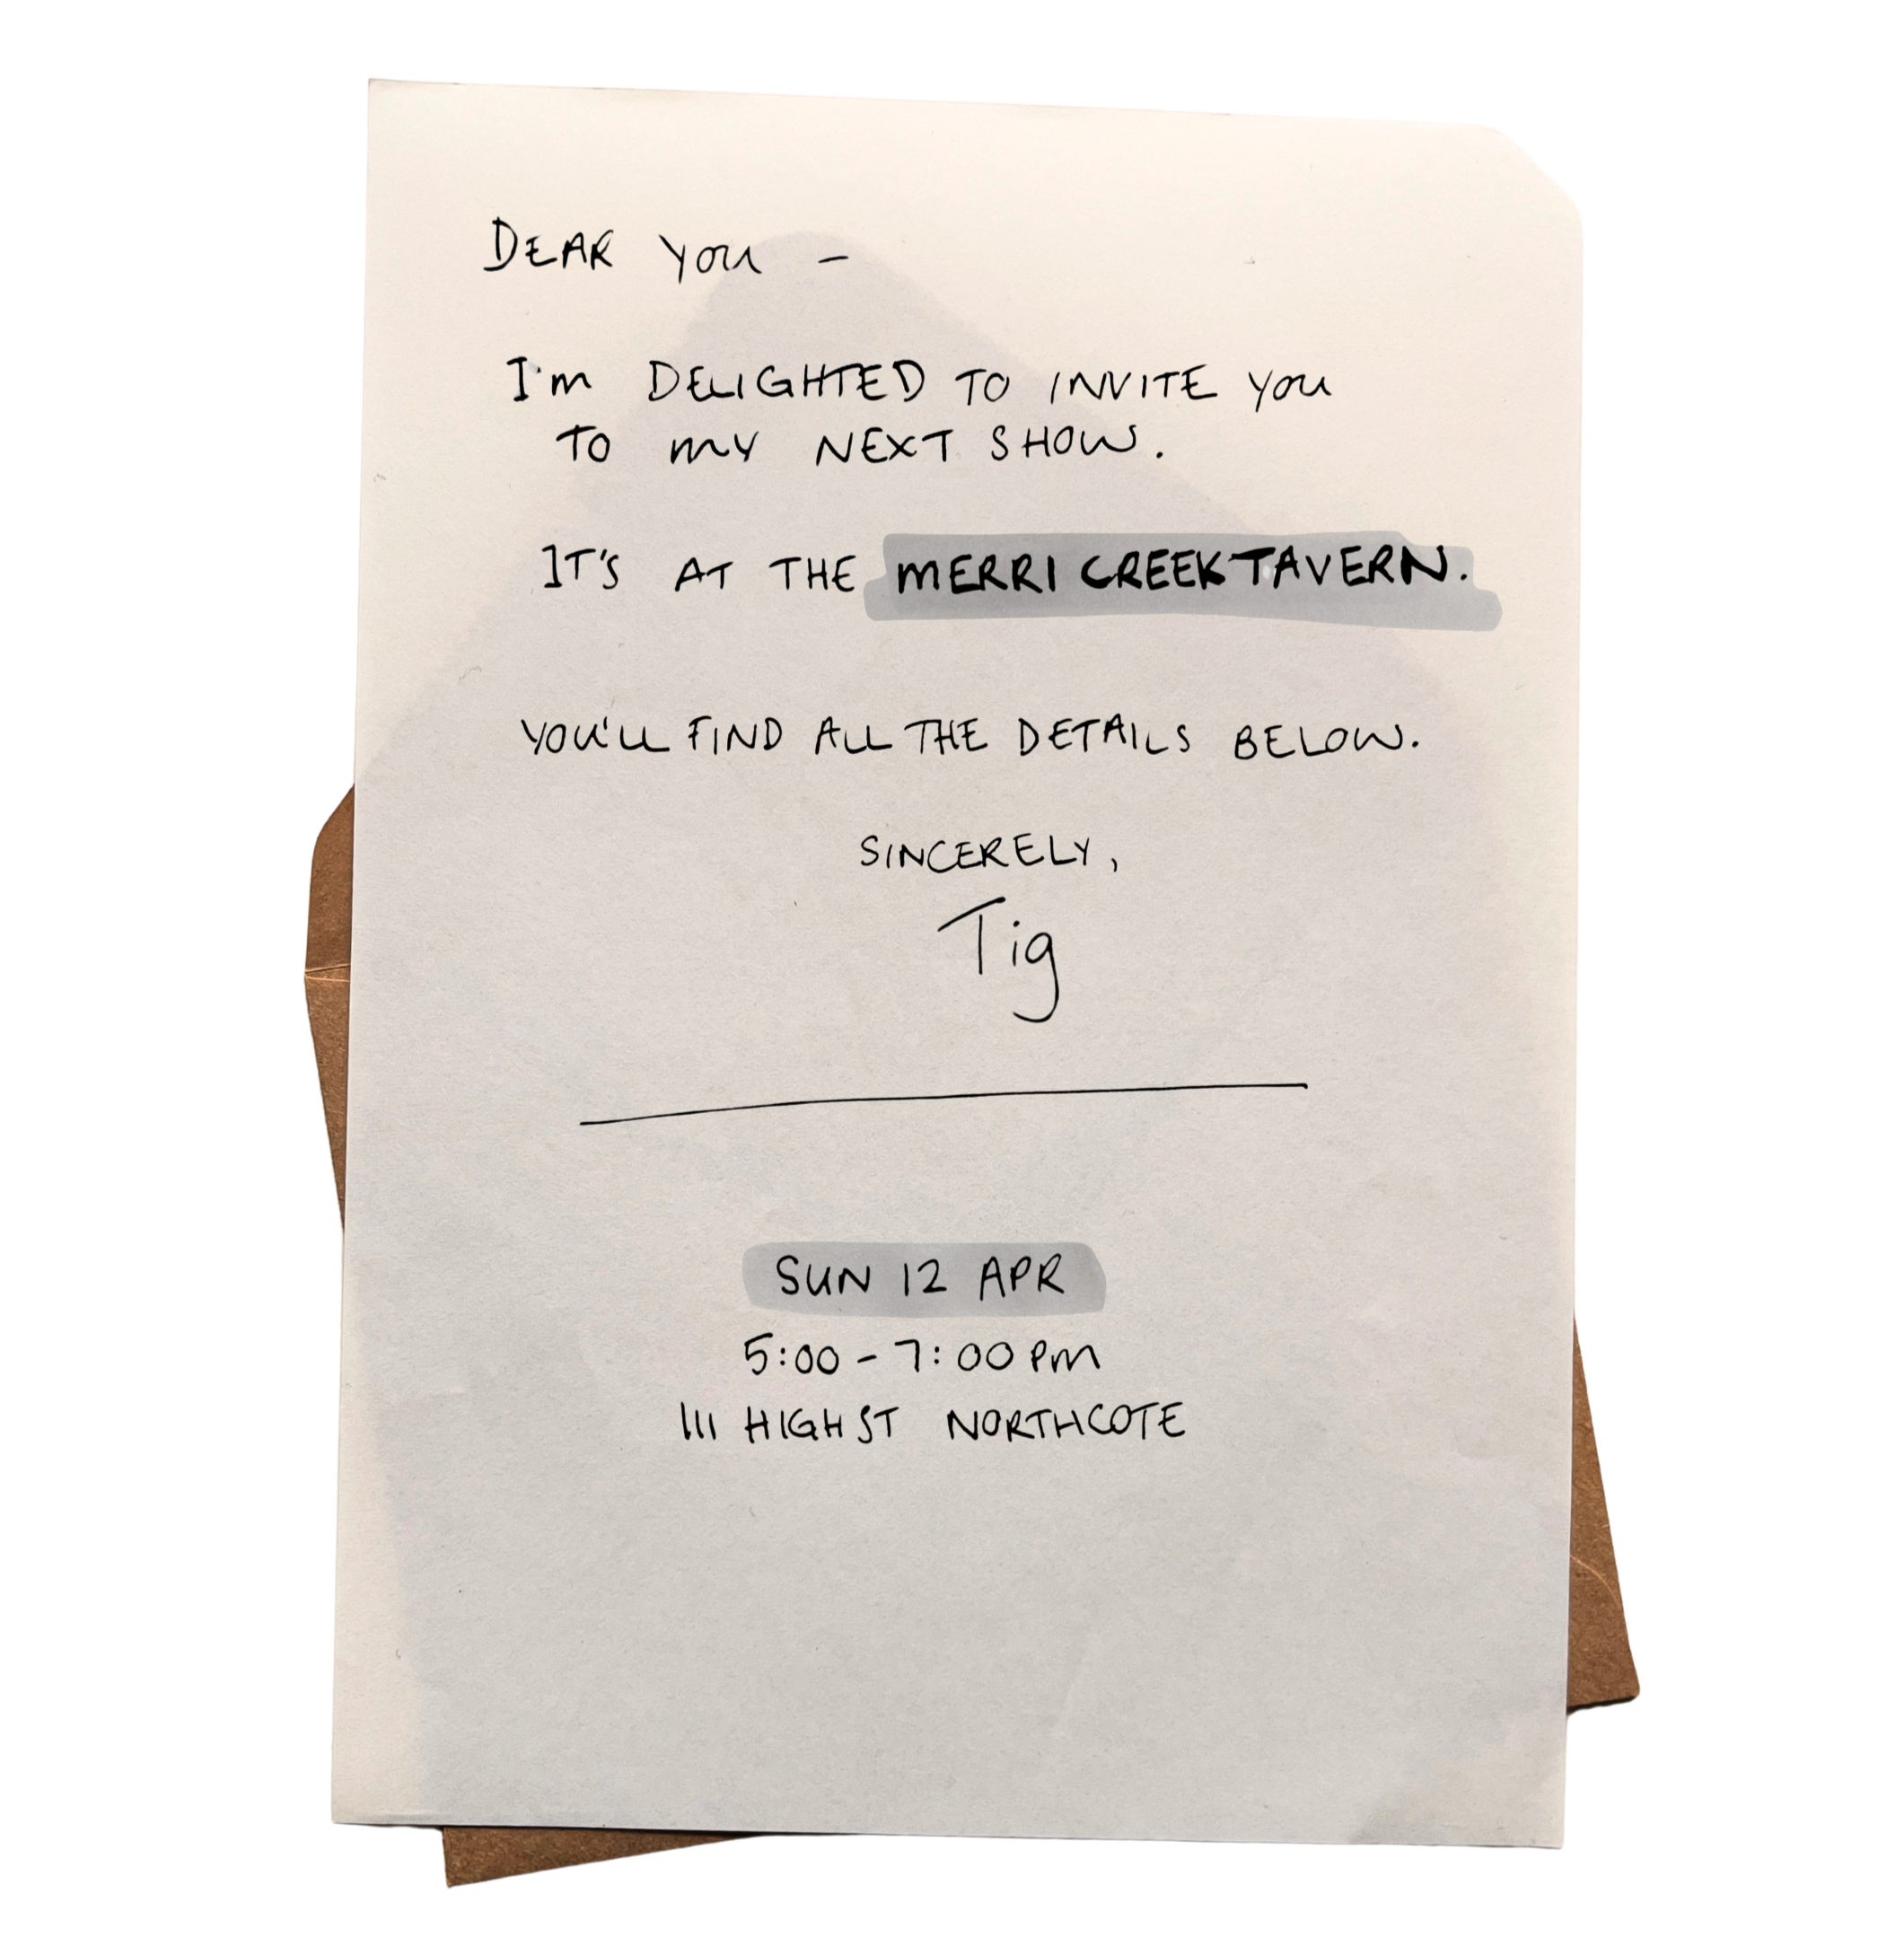 DEAR YOU -
I'm DELIGHTED TO INVITE YOU
TO MY NEXT SHOW.
IT'S AT THE MERRI CREEK TAVERN.
YOU'LL FIND ALL THE DETAILS BELOW.
SINCERELY,
Tig
SUN 12 APR
5:00 - 7:00 PM
111 HIGH ST NORTHCOTE